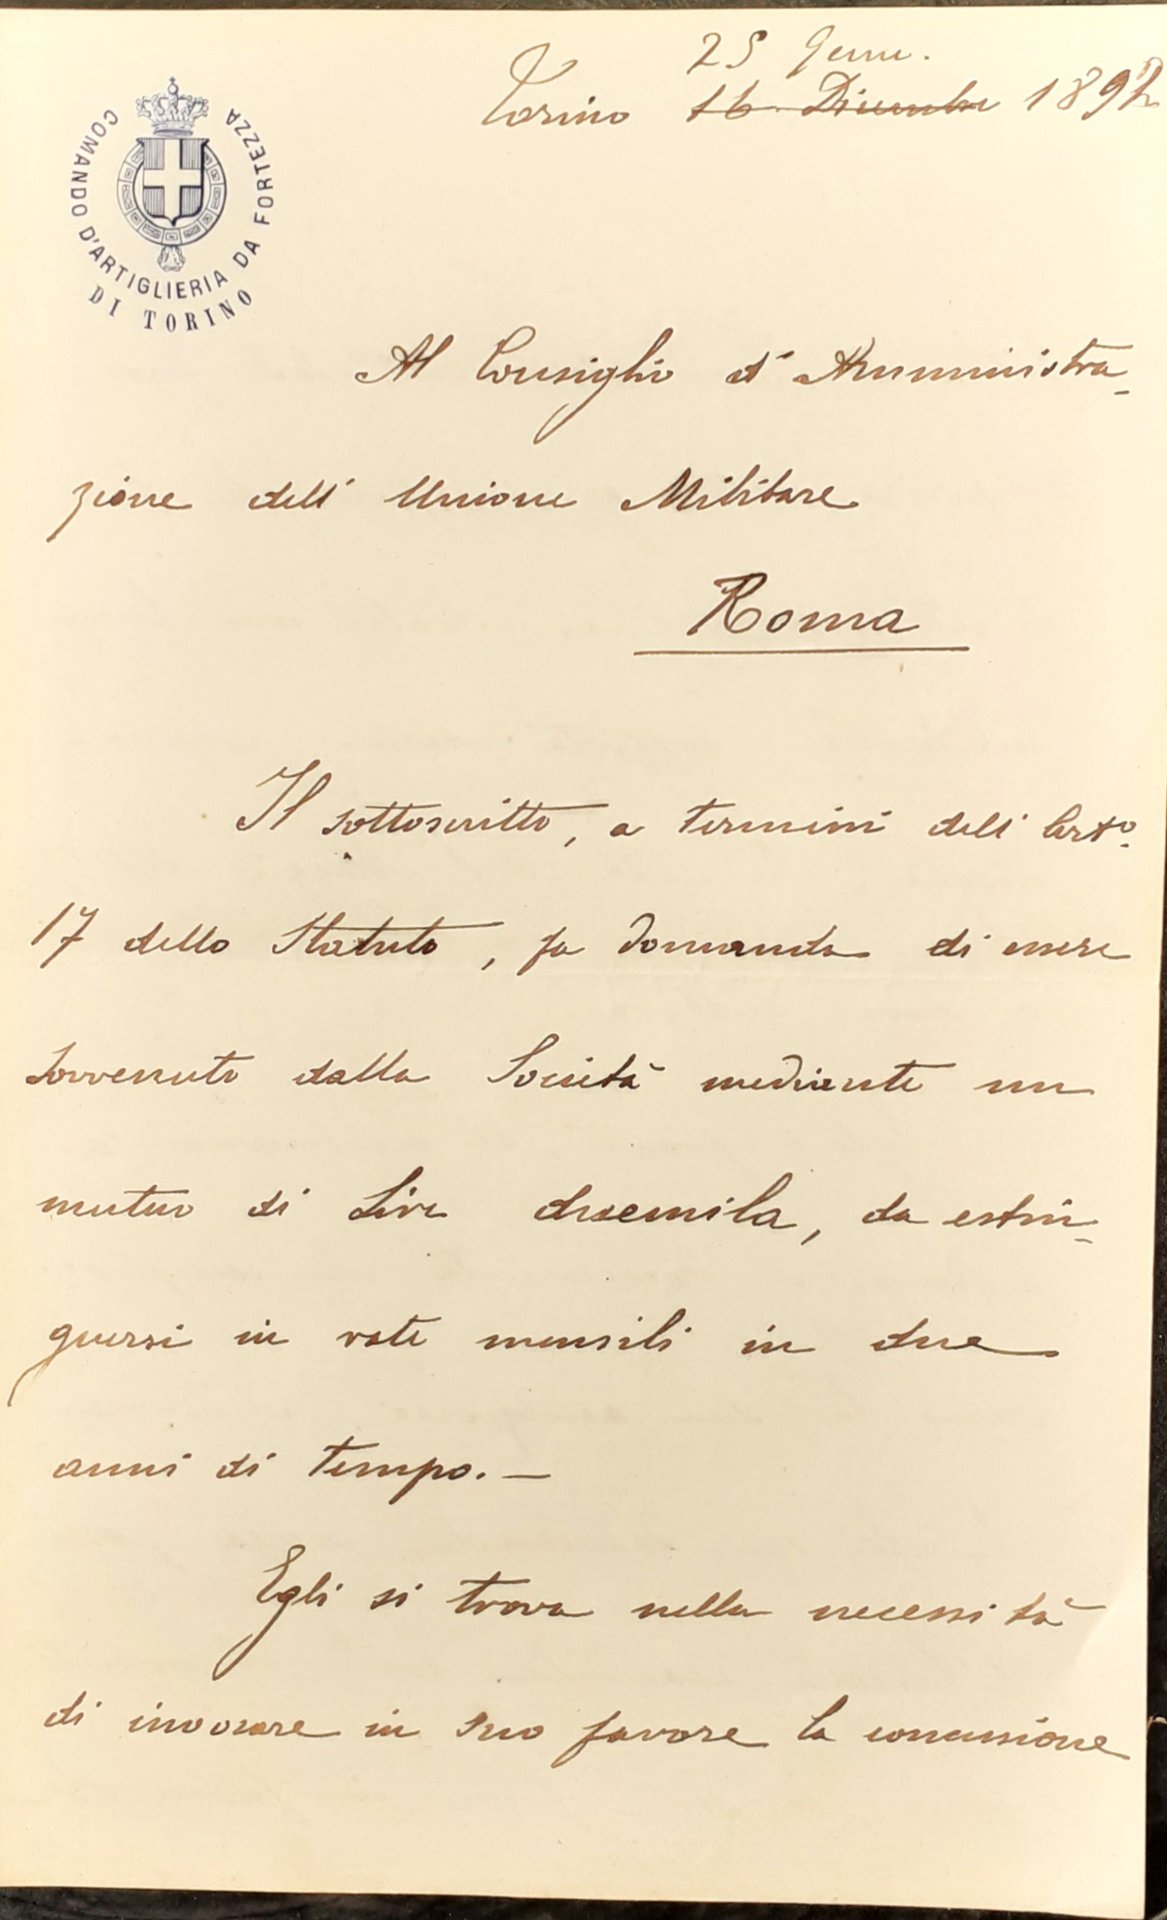 25 Genn.
Torino 16 Dicembre 1892
COMANDO D'ARTIGLIERIA DA FORTEZZA
DI TORINO
Al Consiglio d'Amministra-
zione dell'Unione Militare
Roma
Il sottoscritto, a termini dell'Arto.
17 dello Statuto, fa domanda di essere
sovvenuto dalla Società mediante un
mutuo di Lire duemila, da estin-
guersi in rate mensili in due
anni di tempo. —
Egli si trova nella necessità
di invocare in suo favore la concessione